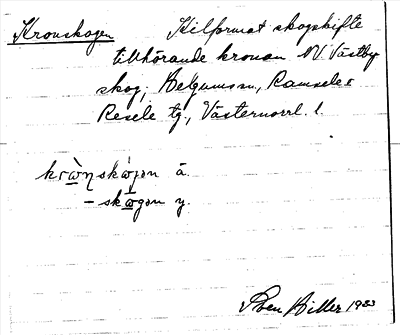 Kronskogen Kilformat skogskifte
tillhörande kronan NV Västby
skog; Helgumssn., Ramsele o
Resele tg., Västernorrl. l.
krὼnskὼgən ä.
– skωgən y.
Sven Hiller 1933